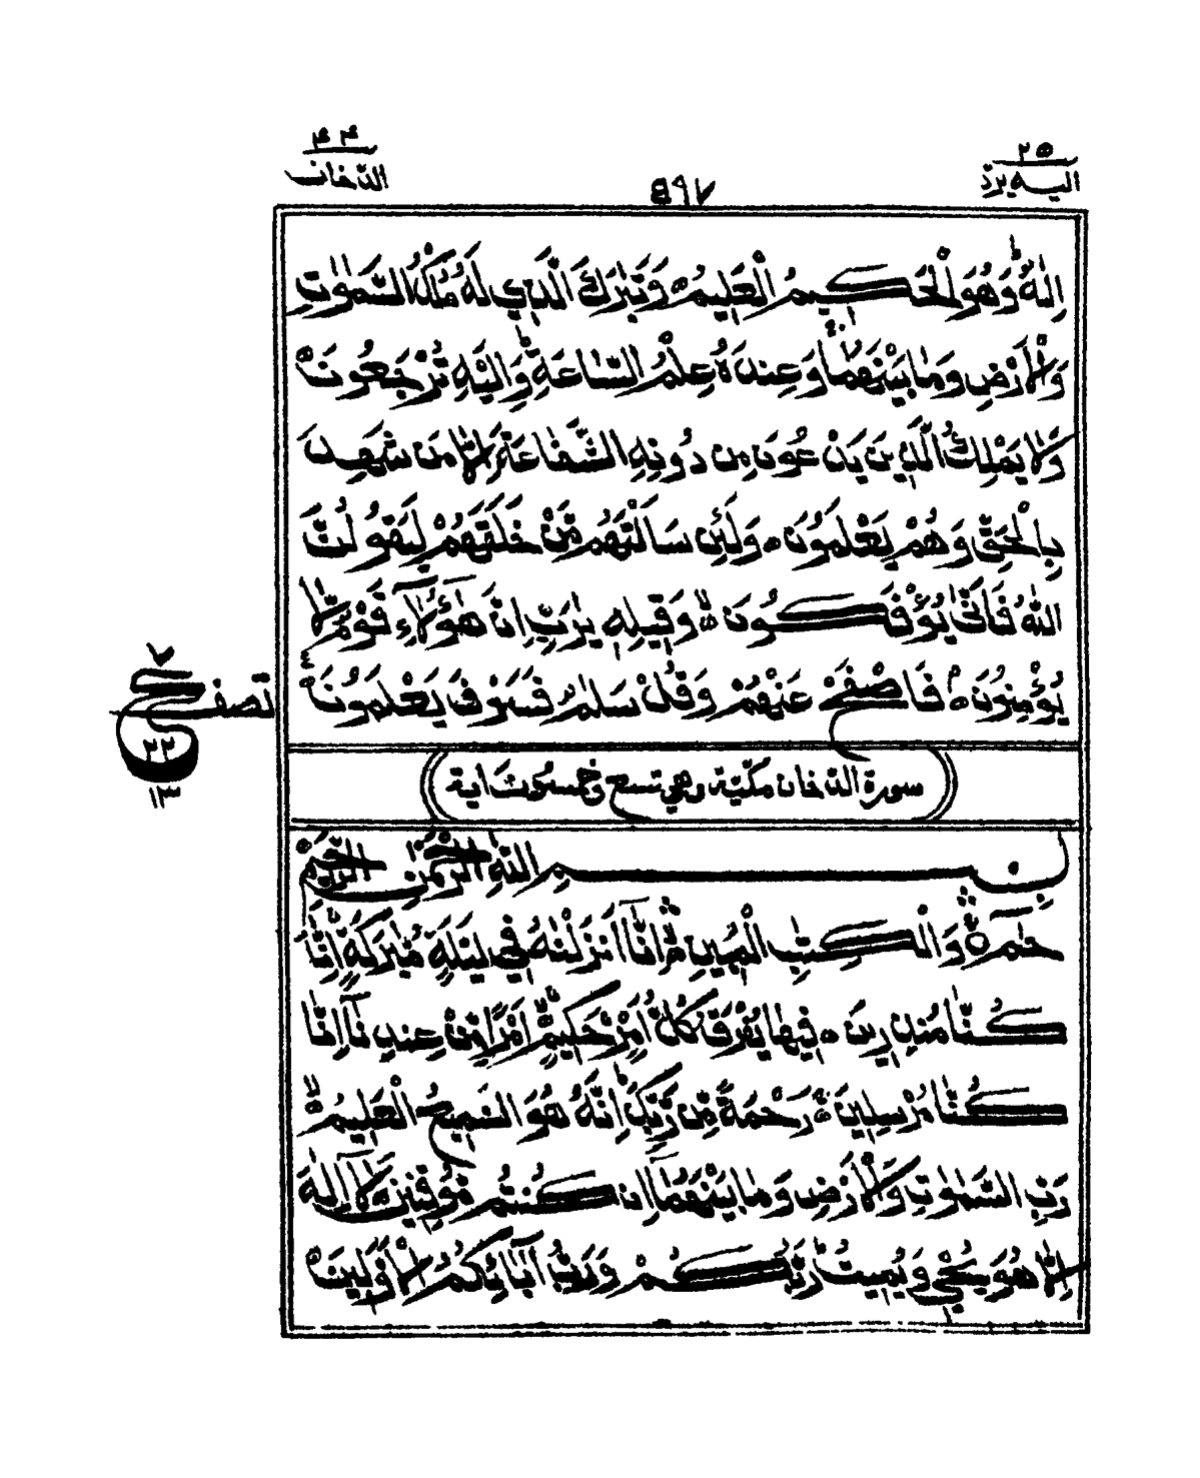 ۲۵
اليه يردّ
۴۹۷
۴۴
الدّخان
اِلٰهٌ وَهُوَ الْحَكِيمُ الْعَلِيمُ ٥ وَتَبٰرَكَ الَّذِي لَهُ مُلْكُ السَّمٰوٰتِ
وَالْاَرْضِ وَمَا بَيْنَهُمَا وَعِنْدَهُ عِلْمُ السَّاعَةِ وَاِلَيْهِ تُرْجَعُونَ ٥
وَلَا يَمْلِكُ الَّذِينَ يَدْعُونَ مِن دُونِهِ الشَّفَاعَةَ اِلَّا مَن شَهِدَ
بِالْحَقِّ وَهُمْ يَعْلَمُونَ ٥ وَلَئِن سَاَلْتَهُم مَّنْ خَلَقَهُمْ لَيَقُولُنَّ
اللّٰهُ فَاَنّٰى يُؤْفَكُونَ ٥ وَقِيلِهِ يٰرَبِّ اِنَّ هٰٓؤُلَآءِ قَوْمٌ لَّا
يُؤْمِنُونَ ٥ فَاصْفَحْ عَنْهُمْ وَقُلْ سَلٰمٌ فَسَوْفَ يَعْلَمُونَ ٥
۷
نصف
۲۲
۱۳
سورة الدخان مكيّة وهي تسع وخمسون اية
بِسْمِ اللّٰهِ الرَّحْمٰنِ الرَّحِيمِ
حٰمٓ ٥ وَالْكِتٰبِ الْمُبِينِ اِنَّآ اَنزَلْنٰهُ فِي لَيْلَةٍ مُّبٰرَكَةٍ اِنَّا
كُنَّا مُنذِرِينَ ٥ فِيهَا يُفْرَقُ كُلُّ اَمْرٍ حَكِيمٍ اَمْرًا مِّنْ عِندِنَآ اِنَّا
كُنَّا مُرْسِلِينَ ٥ رَحْمَةً مِّن رَّبِّكَ اِنَّهُ هُوَ السَّمِيعُ الْعَلِيمُ ٥
رَبِّ السَّمٰوٰتِ وَالْاَرْضِ وَمَا بَيْنَهُمَا اِن كُنتُم مُّوقِنِينَ ٥ لَآ اِلٰهَ
اِلَّا هُوَ يُحْيِ وَيُمِيتُ رَبُّكُمْ وَرَبُّ اٰبَآئِكُمُ الْاَوَّلِينَ ٥